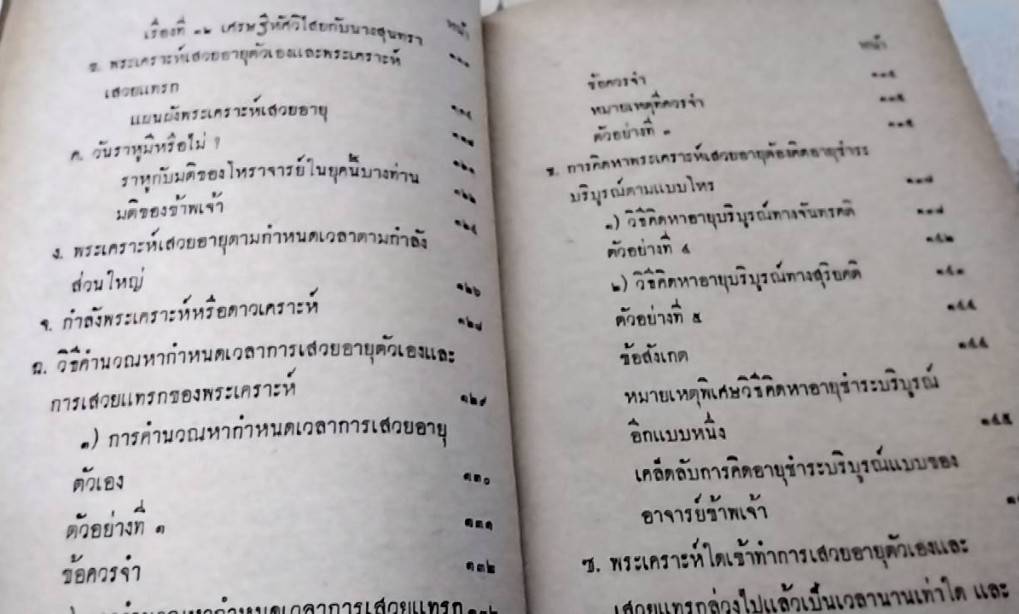 หน้า
เรื่องที่ ๑๒ เศรษฐีหัศวิไสยกับนางสุนทรา
ข. พระเคราะห์เสวยอายุตัวเองและพระเคราะห์
เสวยแทรก
แผนผังพระเคราะห์เสวยอายุ
ค. วันราหูมีหรือไม่ ?
ราหูกับมติของโหราจารย์ในยุคนี้บางท่าน
มติของข้าพเจ้า
ง. พระเคราะห์เสวยอายุตามกำหนดเวลาตามกำลัง
ส่วนใหญ่ ๑๒๖
จ. กำลังพระเคราะห์หรือดาวเคราะห์ ๑๒๘
ฉ. วิธีคำนวณหากำหนดเวลาการเสวยอายุตัวเองและ
การเสวยแทรกของพระเคราะห์ ๑๒๙
๑) การคำนวณหากำหนดเวลาการเสวยอายุ
ตัวเอง ๑๓๐
ตัวอย่างที่ ๑ ๑๓๑
ข้อควรจำ ๑๓๒
คำนวณหากำหนดเวลาการเสวยแทรก
หน้า
ข้อควรจำ ๑๓๕
หมายเหตุที่ควรจำ ๑๓๕
ตัวอย่างที่ ๓ ๑๓๕
ช. การคิดหาพระเคราะห์เสวยอายุต้องคิดอายุชำระ
บริบูรณ์ตามแบบโหร ๑๓๘
๑) วิธีคิดหาอายุบริบูรณ์ทางจันทรคติ ๑๓๘
ตัวอย่างที่ ๔ ๑๔๒
๒) วิธีคิดหาอายุบริบูรณ์ทางสุริยคติ ๑๔๓
ตัวอย่างที่ ๕ ๑๔๔
ข้อสังเกต ๑๔๔
หมายเหตุพิเศษวิธีคิดหาอายุชำระบริบูรณ์
อีกแบบหนึ่ง ๑๔๕
เคล็ดลับการคิดอายุชำระบริบูรณ์แบบของ
อาจารย์ข้าพเจ้า
ซ. พระเคราะห์ใดเข้าทำการเสวยอายุตัวเองและ
เสวยแทรกล่วงไปแล้วเป็นเวลานานเท่าใด และ